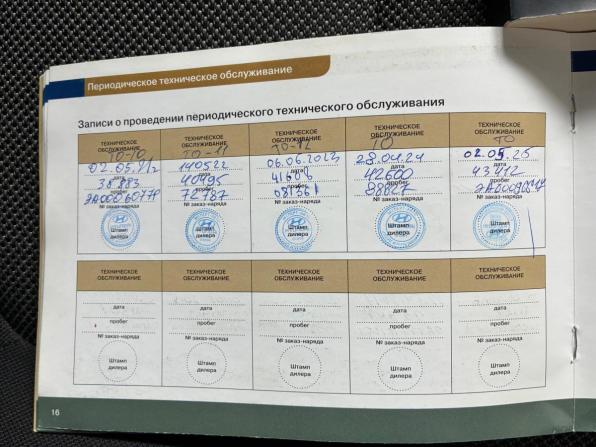 Периодическое техническое обслуживание
Записи о проведении периодического технического обслуживания
ТЕХНИЧЕСКОЕ ОБСЛУЖИВАНИЕ
ТО-10
дата
38 883
пробег
№ заказ-наряда
Штамп дилера
ТЕХНИЧЕСКОЕ ОБСЛУЖИВАНИЕ
ТО-11
дата
40495
пробег
72787
№ заказ-наряда
Штамп дилера
ТЕХНИЧЕСКОЕ ОБСЛУЖИВАНИЕ
ТО-12
06.06.2023
дата
41606
пробег
081361
№ заказ-наряда
Штамп дилера
ТЕХНИЧЕСКОЕ ОБСЛУЖИВАНИЕ
ТО
28.04.24
дата
42600
пробег
№ заказ-наряда
Штамп дилера
ТЕХНИЧЕСКОЕ ОБСЛУЖИВАНИЕ
ТО
02.05.25
дата
43412
пробег
№ заказ-наряда
Штамп дилера
ТЕХНИЧЕСКОЕ ОБСЛУЖИВАНИЕ
дата
пробег
№ заказ-наряда
Штамп дилера
ТЕХНИЧЕСКОЕ ОБСЛУЖИВАНИЕ
дата
пробег
№ заказ-наряда
Штамп дилера
ТЕХНИЧЕСКОЕ ОБСЛУЖИВАНИЕ
дата
пробег
№ заказ-наряда
Штамп дилера
ТЕХНИЧЕСКОЕ ОБСЛУЖИВАНИЕ
дата
пробег
№ заказ-наряда
Штамп дилера
ТЕХНИЧЕСКОЕ ОБСЛУЖИВАНИЕ
дата
пробег
№ заказ-наряда
Штамп дилера
16